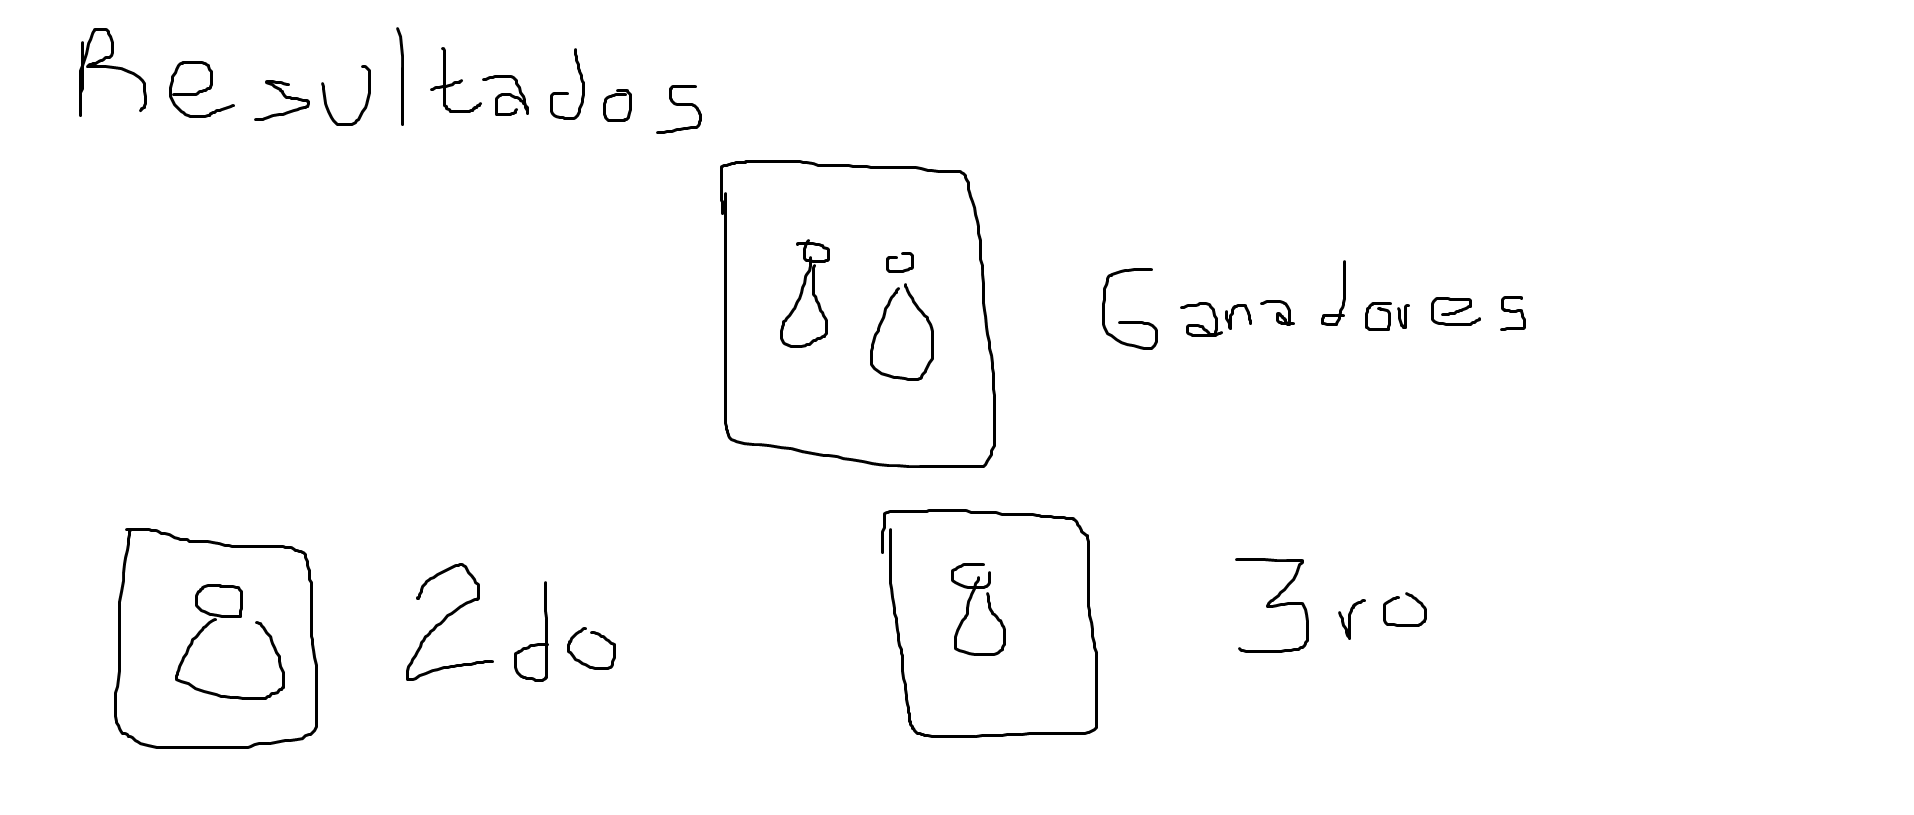 Resultados
Ganadores
2do
3ro